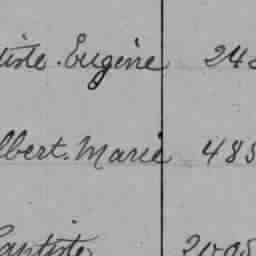 tiste. Eugène 24
lbert. Marie 485
Baptiste 2005